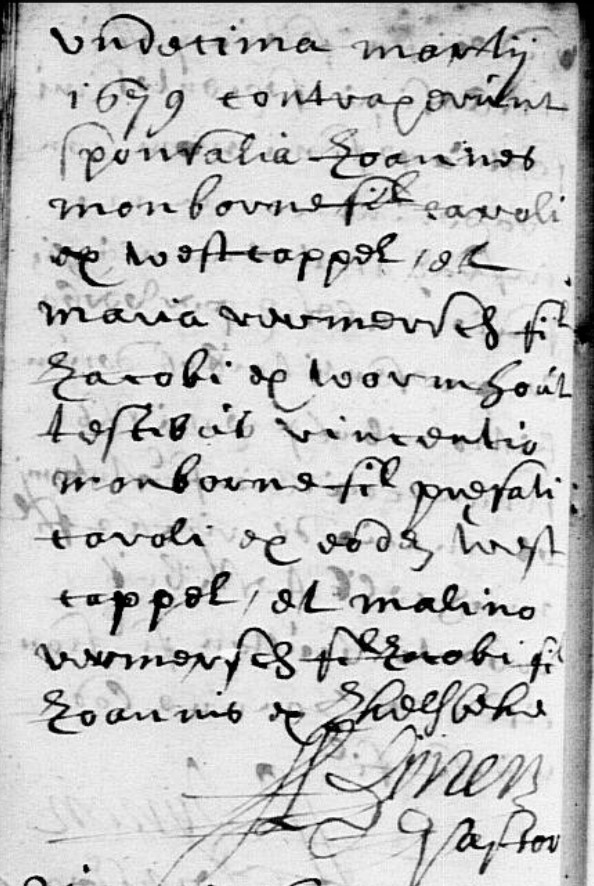 undecima martij
1679 contraxerunt
sponsalia Joannes
monborne fil caroli
ex westcappel, et
maria vermersch fil
Jacobi ex wormhout
testibus vincentio
monborne fil prefati
caroli ex eodem west
cappel, et malino
vermersch fil Jacobi fil
Joannis ex
pastor